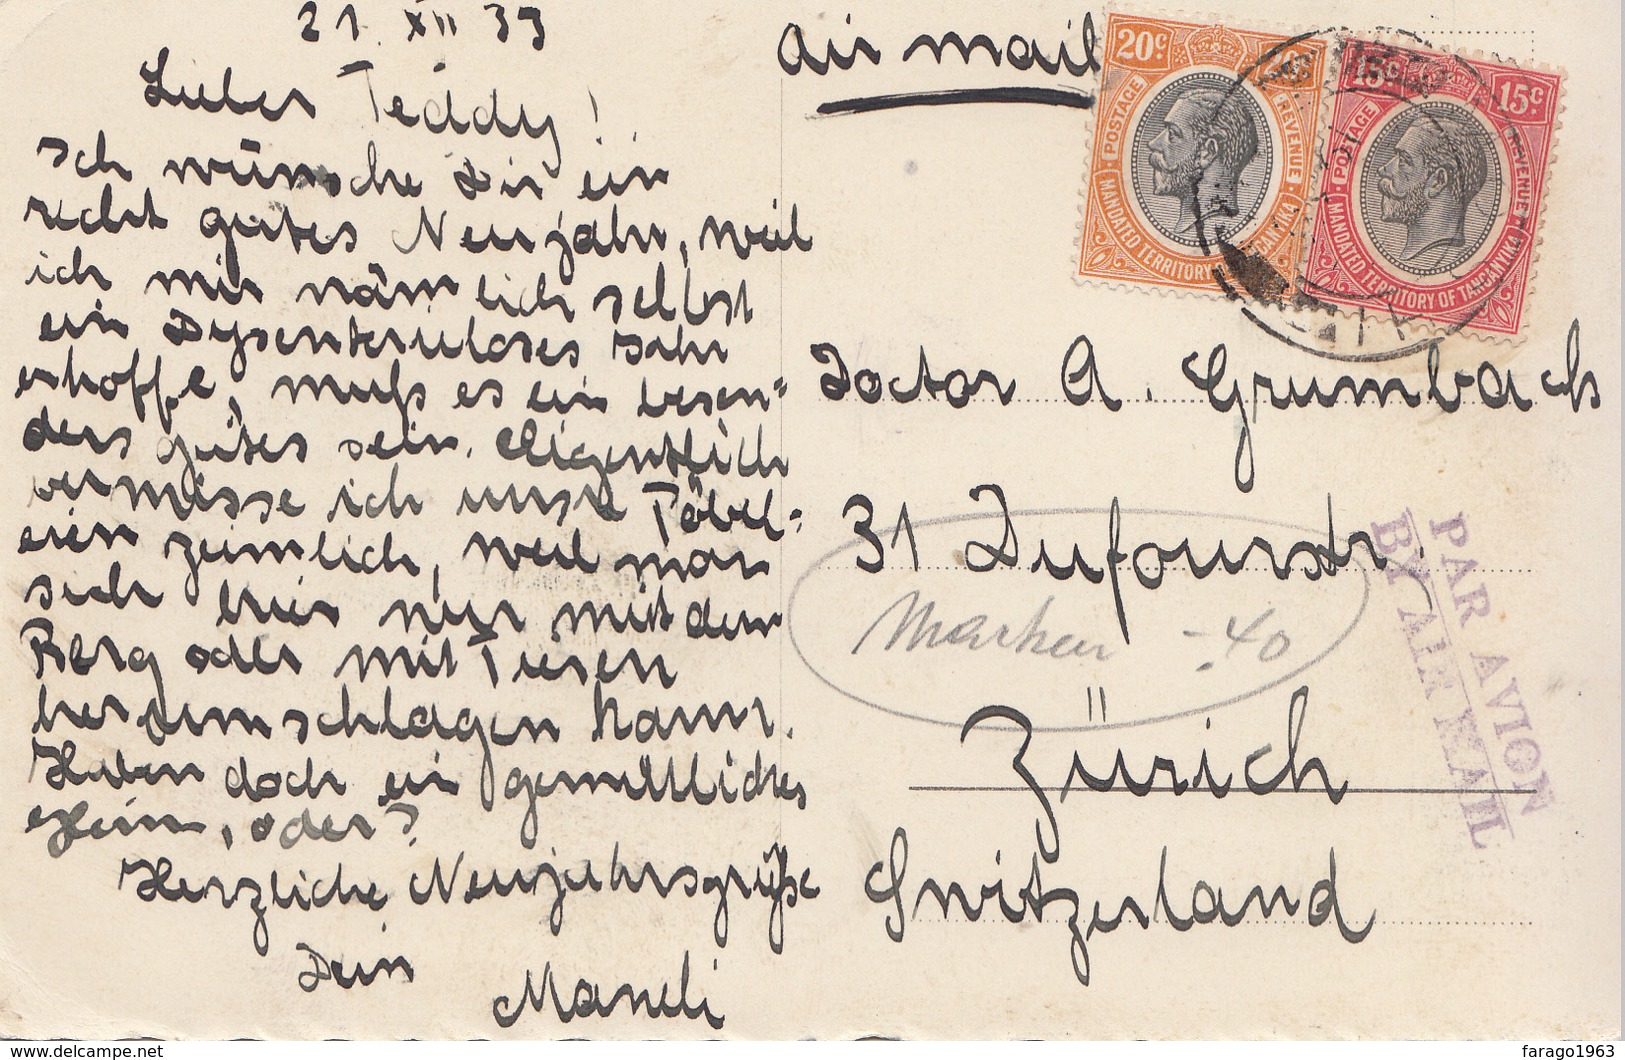 21. XII 33
Lieber Teddy!
Ich wünsche Dir ein
recht gutes Neujahr, weil
ich mir nämlich selbst
ein Dysenterieloses Jahr
erhoffe, muß es ein beson=
ders gutes sein. Eigentlich
vermisse ich unsre Pöbel=
eien ziemlich, weil man
sich hier nur mit dem
Berg oder mit Tieren
herumschlagen kann.
Haben doch ein gemütliches
Heim, oder?
Herzliche Neujahrsgrüße
Dein
Mandi
Air mail
20c 20c
POSTAGE REVENUE
MANDATED TERRITORY OF TANGANYIKA
15c 15c
POSTAGE REVENUE
MANDATED TERRITORY OF TANGANYIKA
Doctor A. Grumbach
31 Dufourstr.
Marken -.40
Zürich
Switzerland
PAR AVION
BY AIR MAIL
https://www.delcampe.net
farago1963